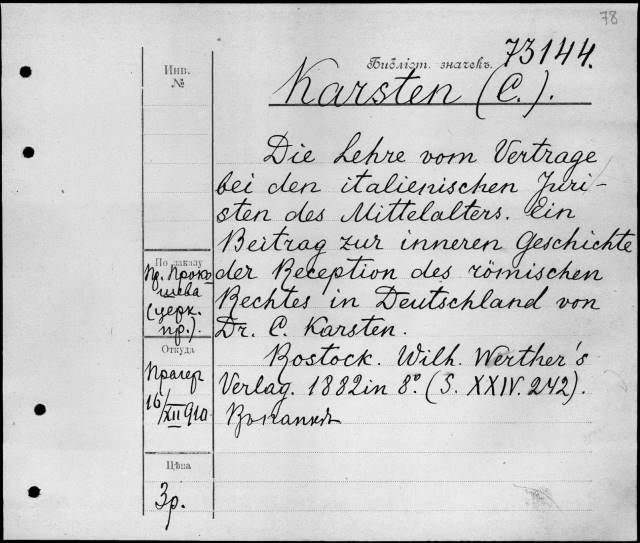 78
Инв.
№
Библіот. значекъ.
73144.
Karsten (C.).
Die Lehre vom Vertrage
bei den italienischen Juri-
sten des Mittelalters. Ein
Beitrag zur inneren Geschichte
der Reception des römischen
Rechtes in Deutschland von
Dr. C. Karsten.
Rostock. Wilh. Werther's
Verlag. 1882 in 8º. (S. XXIV. 242).
По заказу
Пр. Прокошева
(церк.
пр.).
Откуда
Прагер
16/XII 910
Цѣна
3р.